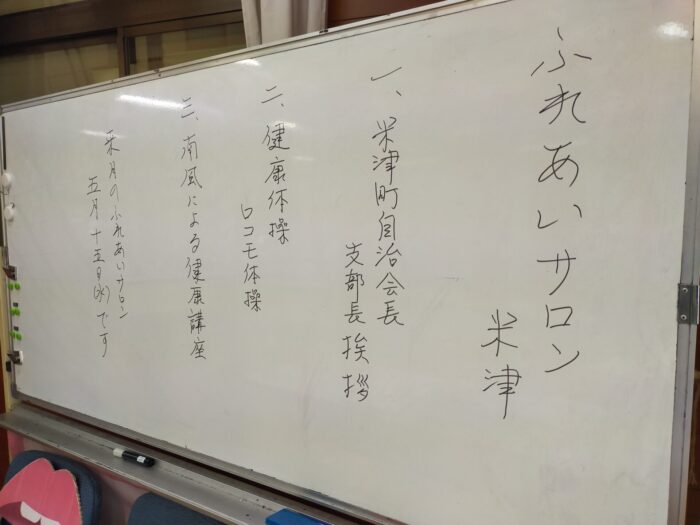 ふれあいサロン
米津
一、米津町自治会長
支部長挨拶
二、健康体操
ロコモ体操
三、南風による健康講座
来月のふれあいサロン
五月十五日(水)です